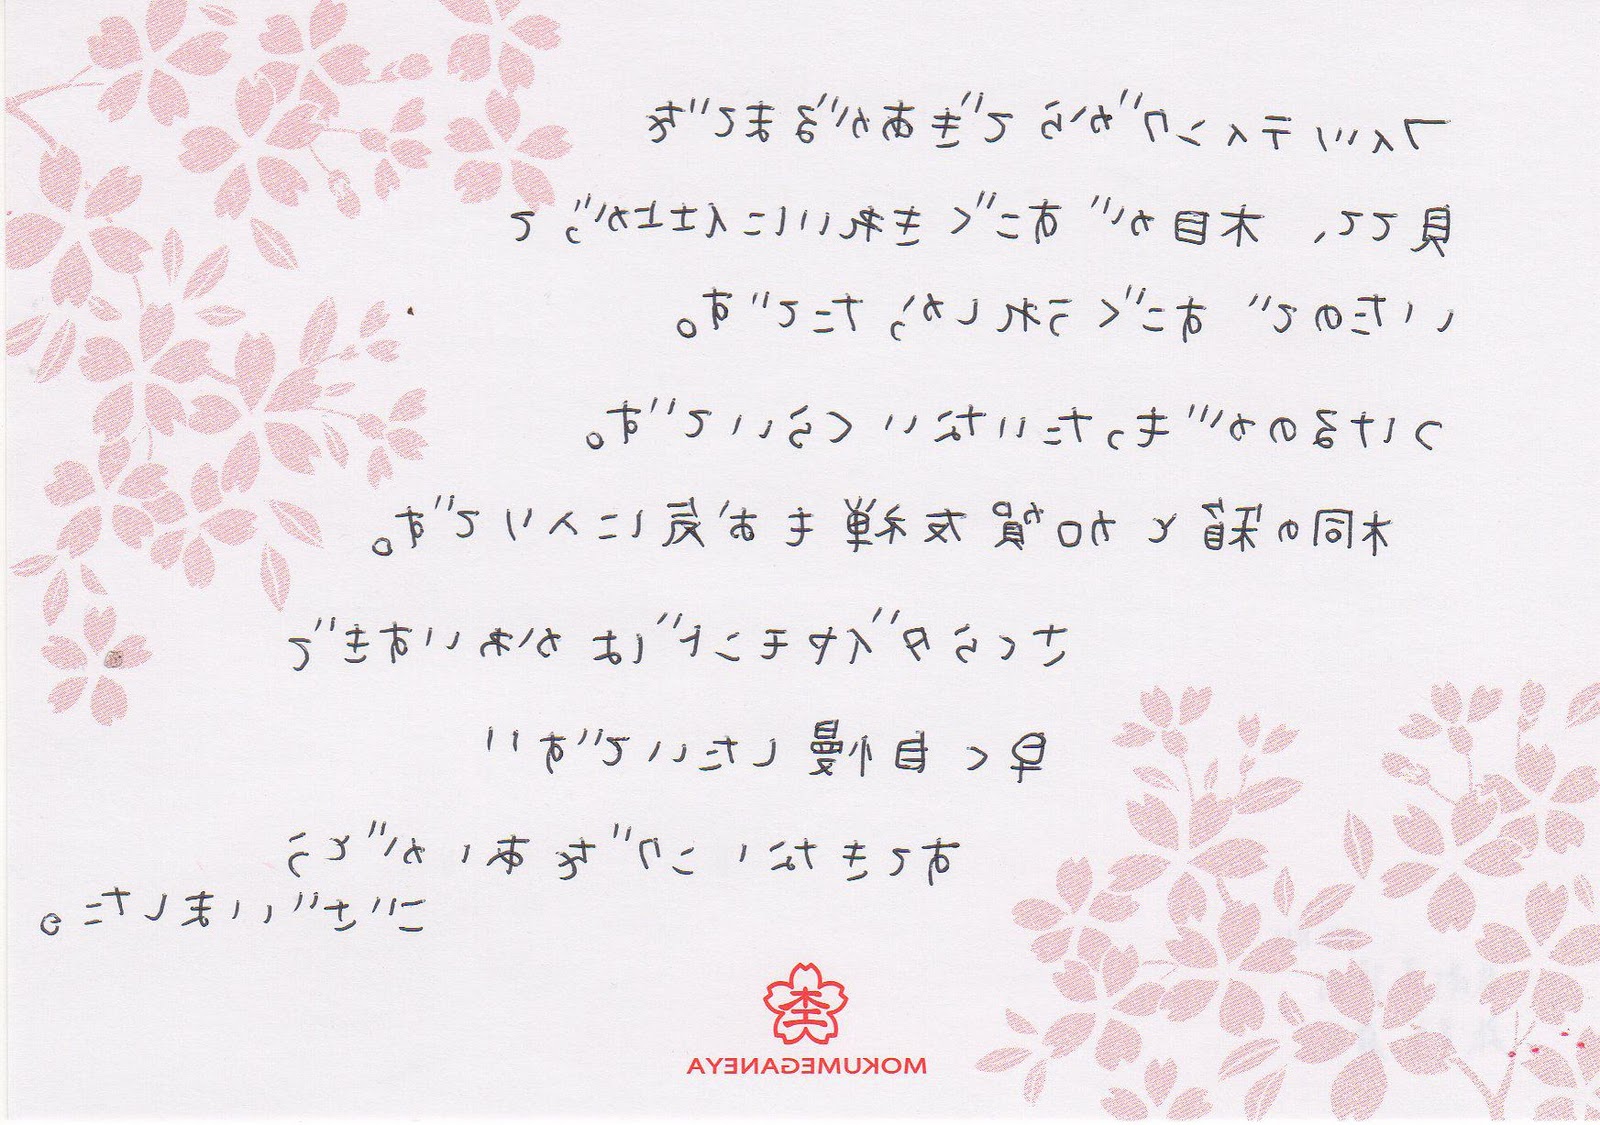 フィッティングからできあがるまでを
見てて、木目がすごくきれいに仕上がって
いたのですごくうれしかったです。
つけるのがもったいないくらいです。
桐の箱と加賀友禅もお気に入りです。
さくらダイヤモンドはかわいすぎて
早く自慢したいです!!
すてきなリングをありがとう
ございました。
杢
MOKUMEGANEYA